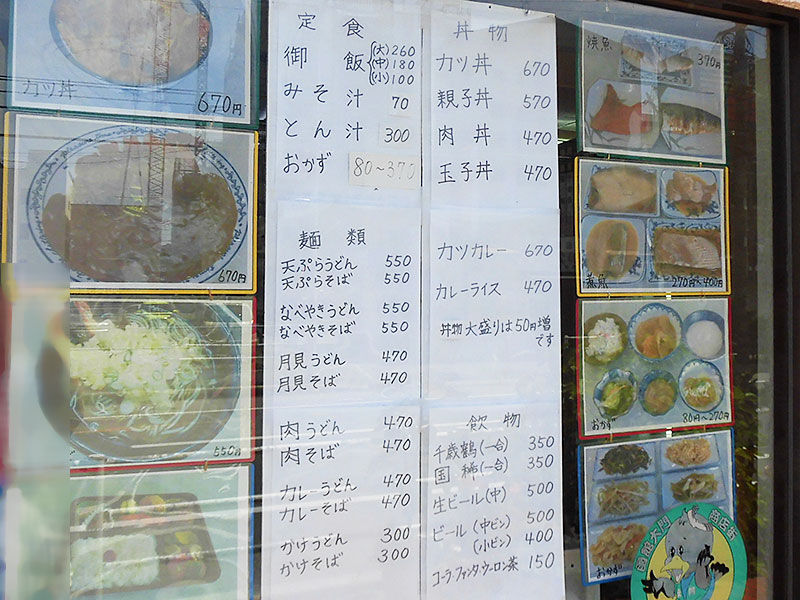 カツ丼
670円
670円
550円
定食
御飯 (大)260
(中)180
(小)100
みそ汁 70
とん汁 300
おかず 80〜370
麺類
天ぷらうどん 550
天ぷらそば 550
なべやきうどん 550
なべやきそば 550
月見うどん 470
月見そば 470
肉うどん 470
肉そば 470
カレーうどん 470
カレーそば 470
かけうどん 300
かけそば 300
丼物
カツ丼 670
親子丼 570
肉丼 470
玉子丼 470
カツカレー 670
カレーライス 470
丼物大盛りは50円増
です
飲物
千歳鶴(一合) 350
国稀(一合) 350
生ビール(中) 500
ビール(中ビン) 500
(小ビン) 400
コーラ・ファンタ・ウーロン茶 150
焼魚
370円
煮魚
270円〜400円
おかず
80円〜270円
おかず